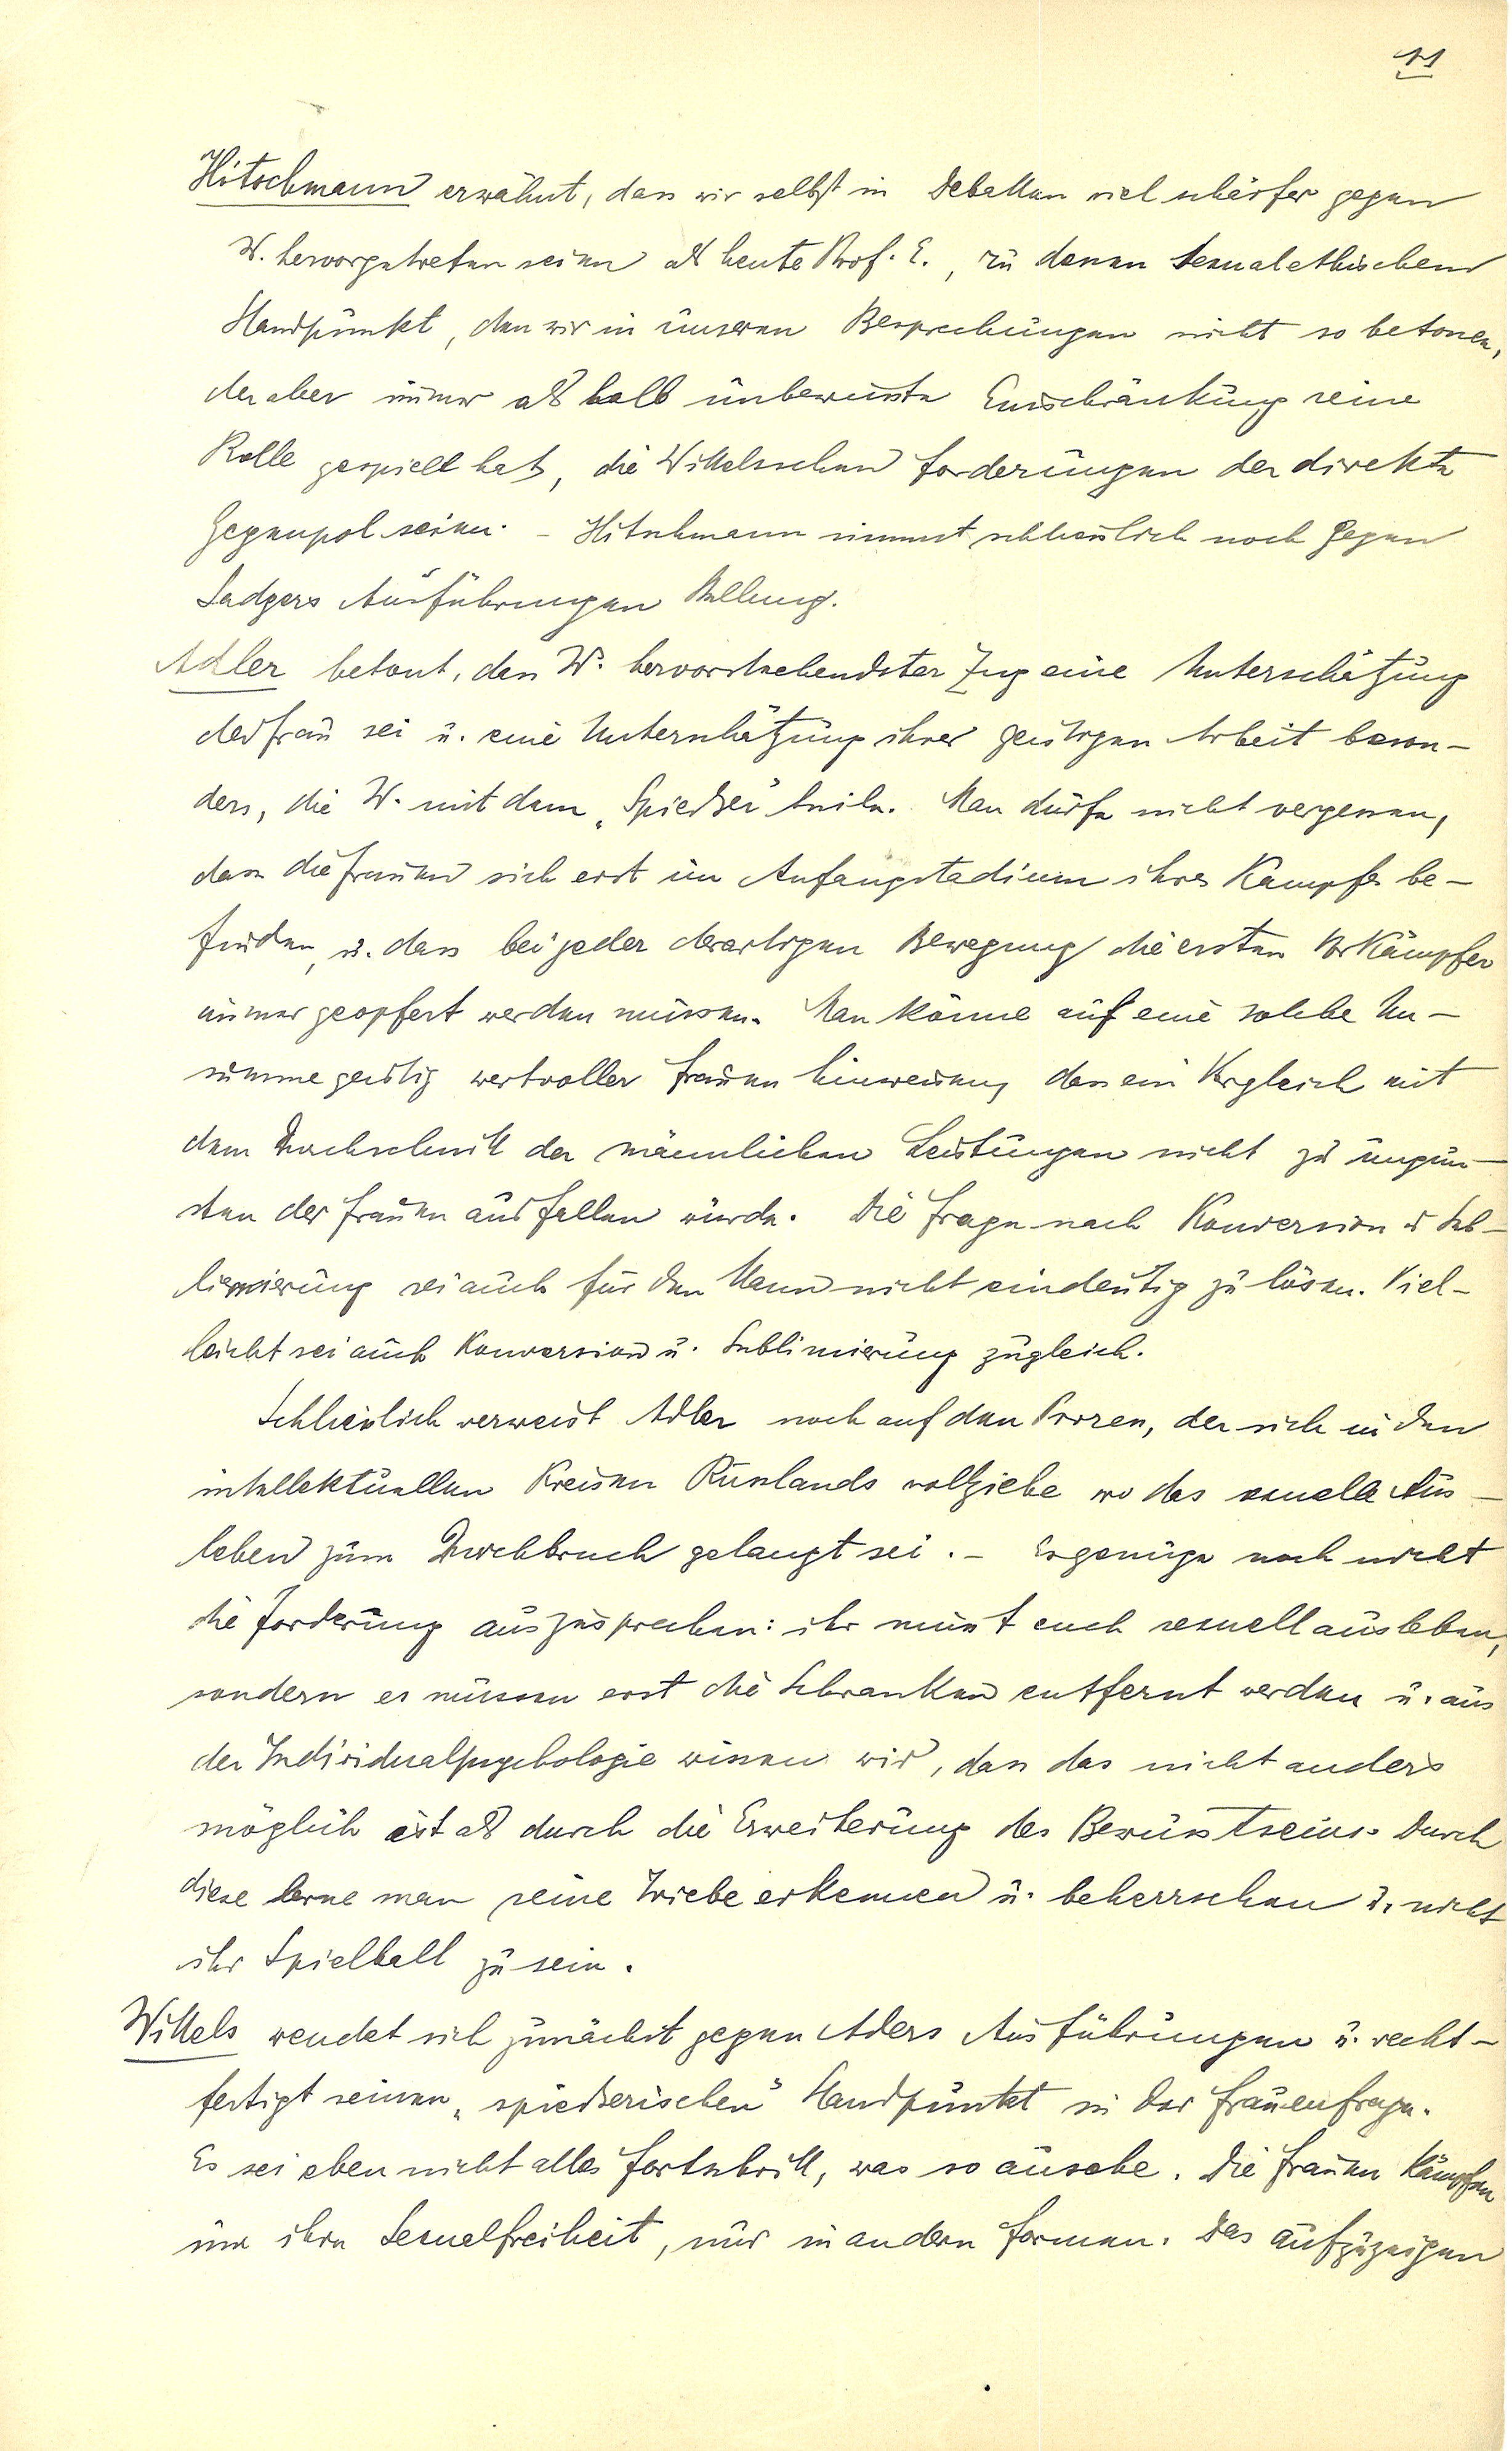 11
Hitschmann erwähnt, dass wir selbst in Debatten viel schärfer gegen
W. hervorgetreten seien als heute Prof. E., zu dessen sexualethischem
Standpunkt, den wir in unseren Besprechungen nicht so betonen,
der aber immer als halb unbewusste Einschränkung seine
Rolle gespielt hat, die Wittelsschen Forderungen der direkte
Gegenpol seien. – Hitschmann nimmt schliesslich noch gegen
Sadgers Ausführungen Stellung.
Adler betont, dass W. hervorstechendster Zug eine Unterschätzung
der Frau sei u. eine Unterschätzung ihrer geistigen Arbeit beson-
ders, die W. mit dem „Spiesser" teile. Man dürfe nicht vergessen,
dass die Frauen sich erst im Anfangstadium ihres Kampfes be-
finden, u. dass bei jeder derartigen Bewegung die ersten Vorkämpfer
immer geopfert werden müssen. Man könne auf eine solche Un-
summe geistig wertvoller Frauen hinweisen, dass ein Vergleich mit
dem Durchschnitt der männlichen Leistungen nicht zu ungun-
sten der Frauen ausfallen würde. Die Frage nach Konversion u Sub-
limierung sei auch für den Mann nicht eindeutig zu lösen. Viel-
leicht sei auch Konversion u. Sublimierung zugleich.
Schliesslich verweist Adler noch auf den Prozess, der sich in den
intellektuellen Kreisen Russlands vollziehe wo das sexuelle Aus-
leben zum Durchbruch gelangt sei. – Es genüge noch nicht
die Forderung auszusprechen: ihr müsst euch sexuell ausleben,
sondern es müssen erst die Schranken entfernt werden u. aus
der Individualpsychologie wissen wir, dass das nicht anders
möglich ist als durch die Erweiterung des Bewusstseins. Durch
diese lerne man seine Triebe erkennen u. beherrschen u. nicht
ihr Spielball zu sein.
Wittels wendet sich zunächst gegen Adlers Ausführungen u. recht-
fertigt seinen „spiesserischen" Standpunkt in der Frauenfrage.
Es sei eben nicht alles Fortschritt, was so aussehe. Die Frauen kämpfen
um ihre Sexualfreiheit, nur in andern Formen. Das aufzuzeigen